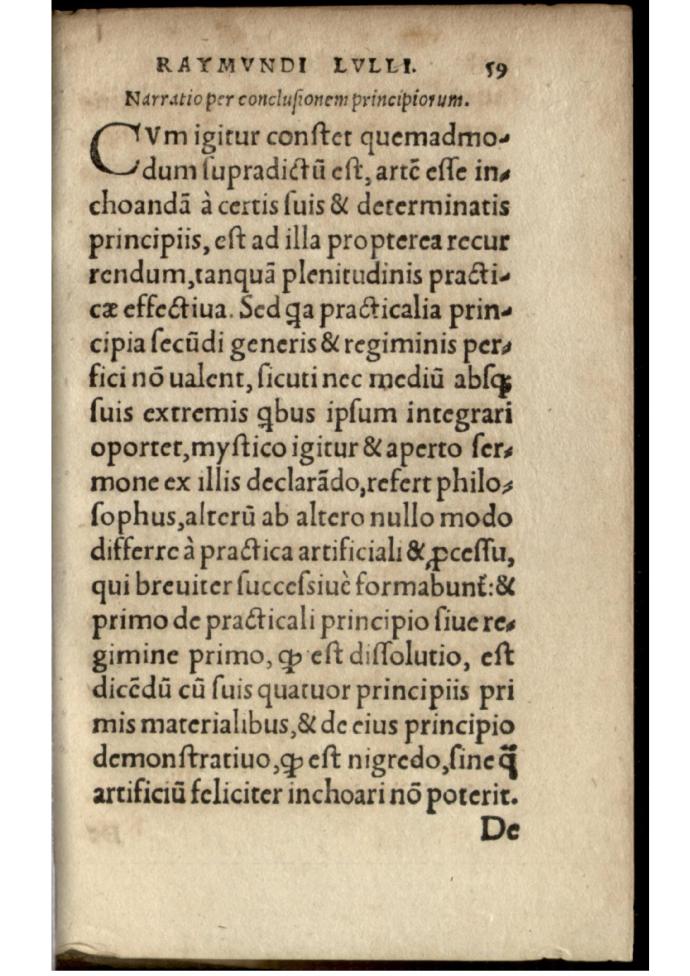 RAYMVNDI LVLLI. 59
Narratio per conclusionem principiorum.
CVm igitur constet quemadmo-
dum supradictū est, artē esse in-
choandā à certis suis & determinatis
principiis, est ad illa propterea recur
rendum, tanquā plenitudinis practi-
cæ effectiua. Sed ꝗa practicalia prin-
cipia secūdi generis & regiminis per-
fici nō ualent, sicuti nec mediū absqꝫ
suis extremis ꝗbus ipsum integrari
oportet, mystico igitur & aperto ser-
mone ex illis declarādo, refert philo-
sophus, alterū ab altero nullo modo
differre à practica artificiali & ꝓcessu,
qui breuiter successiuè formabunt᷑: &
primo de practicali principio siue re-
gimine primo, ꝙ est dissolutio, est
dicēdū cū suis quatuor principiis pri
mis materialibus, & de eius principio
demonstratiuo, ꝙ est nigredo, sine q̄
artificiū feliciter inchoari nō poterit.
De